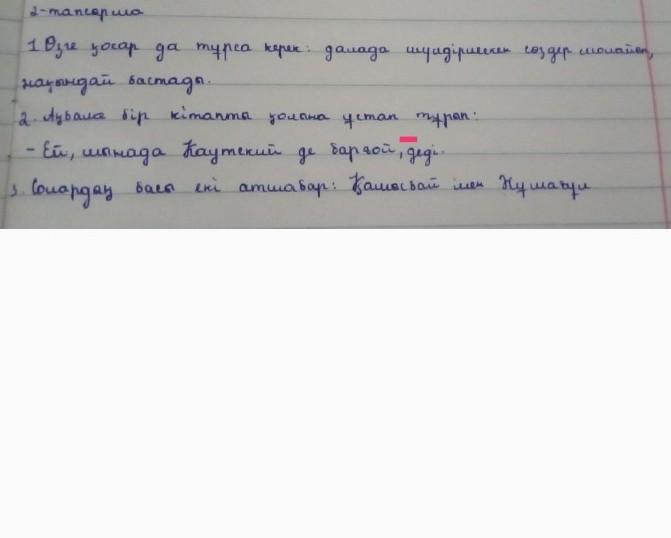 2-тапсырма
1 Өзге қосар да тұрса керек: далада шүңдіріскен сөздер молайып,
жақындай бастады.
2. Ақбала бір кітапты қолына ұстап тұрып:
- Ей, мынада Каутский де барғой, деді.
3. Солардың басы екі атшабар: Қамысбай мен Жұмағұл